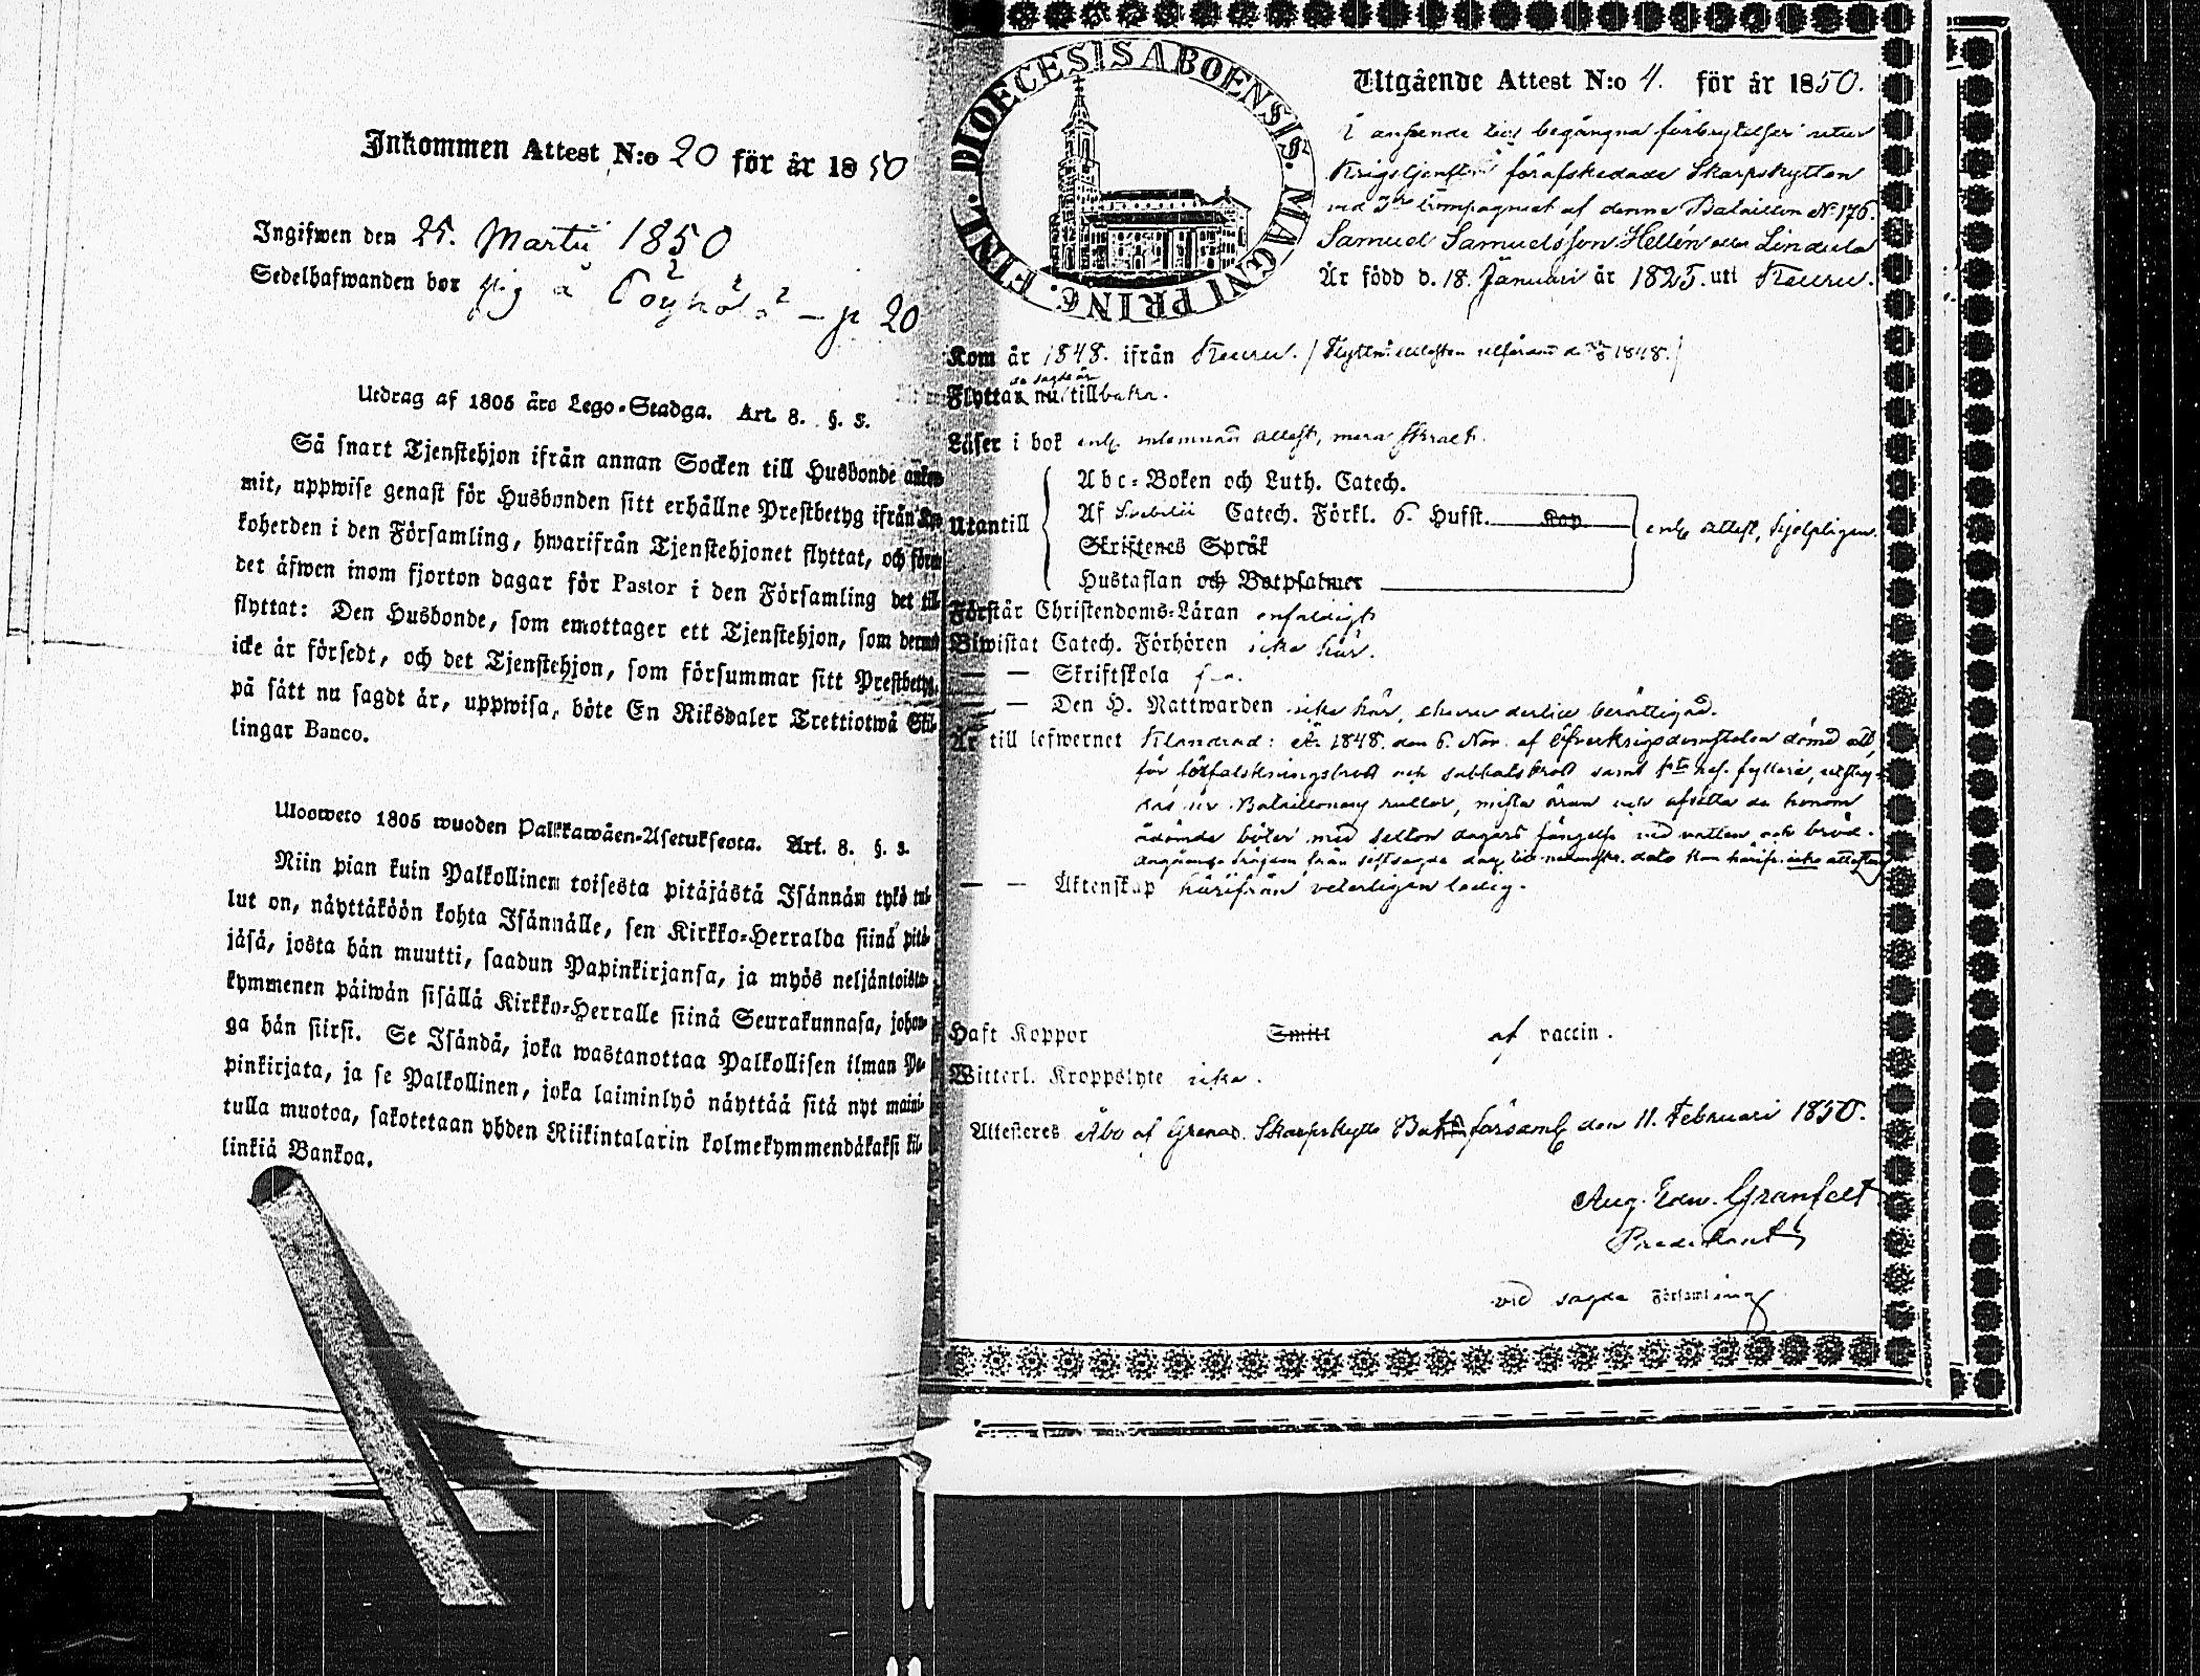 Inkommen Attest N:o 20 för år 1850
Ingifwen den 25. Martii 1850
Sedelhafwanden bor på 20
Utdrag af 1805 års Lego-Stadga. Art. 8. §. 3.
Så snart Tjenstehjon ifrån annan Socken till Husbonde ankom-
mit, uppwise genast för Husbonden sitt erhållne Prestbetyg ifrån Kyr-
koherden i den Församling, hwarifrån Tjenstehjonet flyttat, och
det äfwen inom fjorton dagar för Pastor i den Församling det till-
flyttat: Den Husbonde, som emottager ett Tjenstehjon, som dermed
icke är försedt, och det Tjenstehjon, som försummar sitt Prestbetyg,
på sätt nu sagdt är, uppwisa, böte En Riksdaler Trettiotwå Skil-
lingar Banco.
Ulosweto 1805 wuoden Palkkawäen-Asetuksesta. Art. 8. §. 3.
Niin pian kuin Palkollinen toisesta pitäjästä Isännän tykö tul-
lut on, näyttäköön kohta Isännälle, sen Kirkko-Herralda siinä pitä-
jäsä, josta hän muutti, saadun Papinkirjansa, ja myös neljäntoista-
kymmenen päiwän sisällä Kirkko-Herralle siinä Seurakunnasa, johon-
ga hän siirsi. Se Isändä, joka wastanottaa Palkollisen ilman Pa-
pinkirjata, ja se Palkollinen, joka laiminlyö näyttää sitä nyt maini-
tulla muotoa, sakotetaan yhden Riikintalarin kolmekymmendäkaksi kil-
linkiä Bankoa.
FINL. DIOECESIS ABOENSIS. MAGNI PRINC.
Utgående Attest N:o 4. för år 1850.
I anseende till begångna förbrytelser utur
Krigstjensten förafskedade Skarpskytten
ved Compagniet af denna Bataillon No 176.
Samuel Samuelsson Hellén eller Lindula
Är född d. 18. Januari år 1825. uti Keuru.
Kom år 1848. ifrån Keuru. 1848.
de sagde år
Flyttar nu tillbaka.
Läser i bok enl. attest, mera svagt.
Utantill
Abc-Boken och Luth. Catech.
Af Svebilii Catech. Förkl. 6. Hufst. Kap.
Skriftenes Språk
Hustaflan och Botpsalmer
enl. attest, hjelpligen.
Förstår Christendoms-Läran enfaldigt
Biwistat Catech. Förhören icke här.
— — Skriftskola
— — Den H. Nattwarden icke här, berättigad.
Är till lefwernet Klandrad: År 1848. den 6. Nov. af dömd att,
för förfalskningsbrott och sabbatsbrott samt fylleri,
Bataillonens rullor, mista äran och afsitta de honom
ådömde böter med dagars fängelse vid vatten och bröd.
— — Äktenskap härifrån veterligen ledig.
Haft Koppor Smitt af vaccin.
Witterl. Kroppslyte icke.
Attesteres Åbo af Grenad. Skarpskytte Bat:s församl. den 11. Februari 1850.
Aug. Edw. Granfelt
Predikant
vid sagde Församling